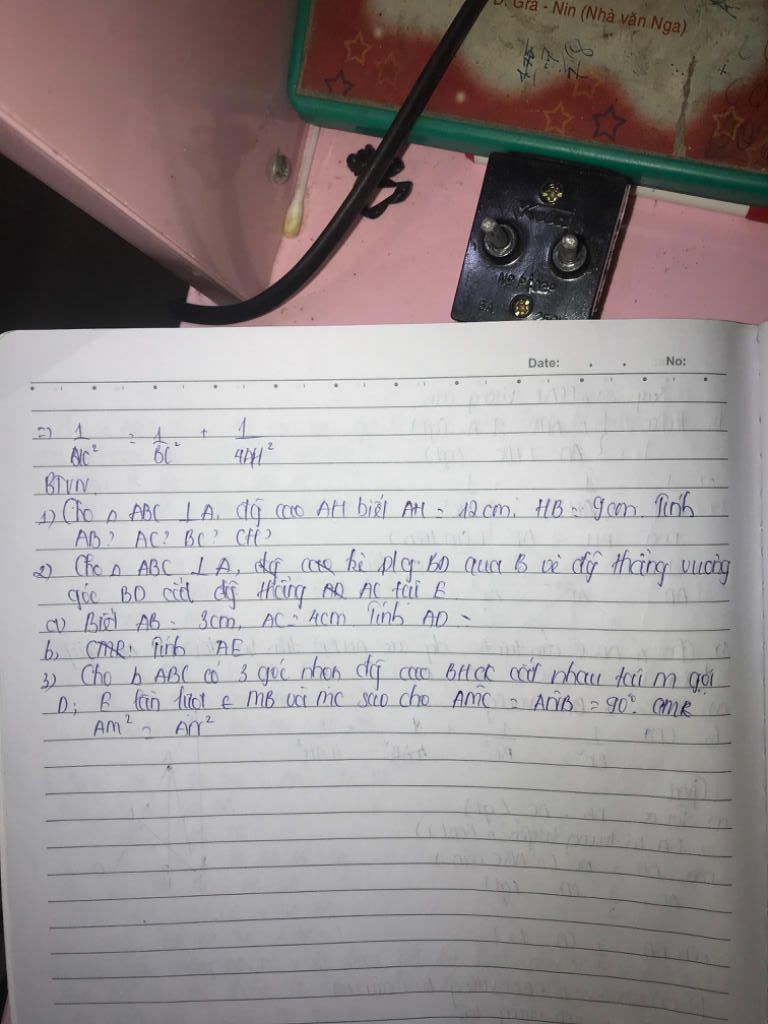 D. Gra - Nin (Nhà văn Nga)
No price
Date: . . No:
=) 1/AC² = 1/BC² + 1/4AH²
BTVN.
1) Cho Δ ABC ⊥ A, đg̃ cao AH biết AH = 12cm. HB = 9cm. Tính
AB? AC? BC? CH?
2) Cho Δ ABC ⊥ A, đg̃ cao kẻ p/g BD qua B vẽ đg̃ thẳng vuông
góc BD cắt đg̃ thẳng AC tại E
a) Biết AB = 3cm, AC = 4cm Tính AD =
b, Tính AE
3) Cho Δ ABC có 3 góc nhọn đg̃ cao cắt nhau tại M gọi
D; E lần lượt ∈ MB và MC sao cho = 90°. CMR
AM² = AN²